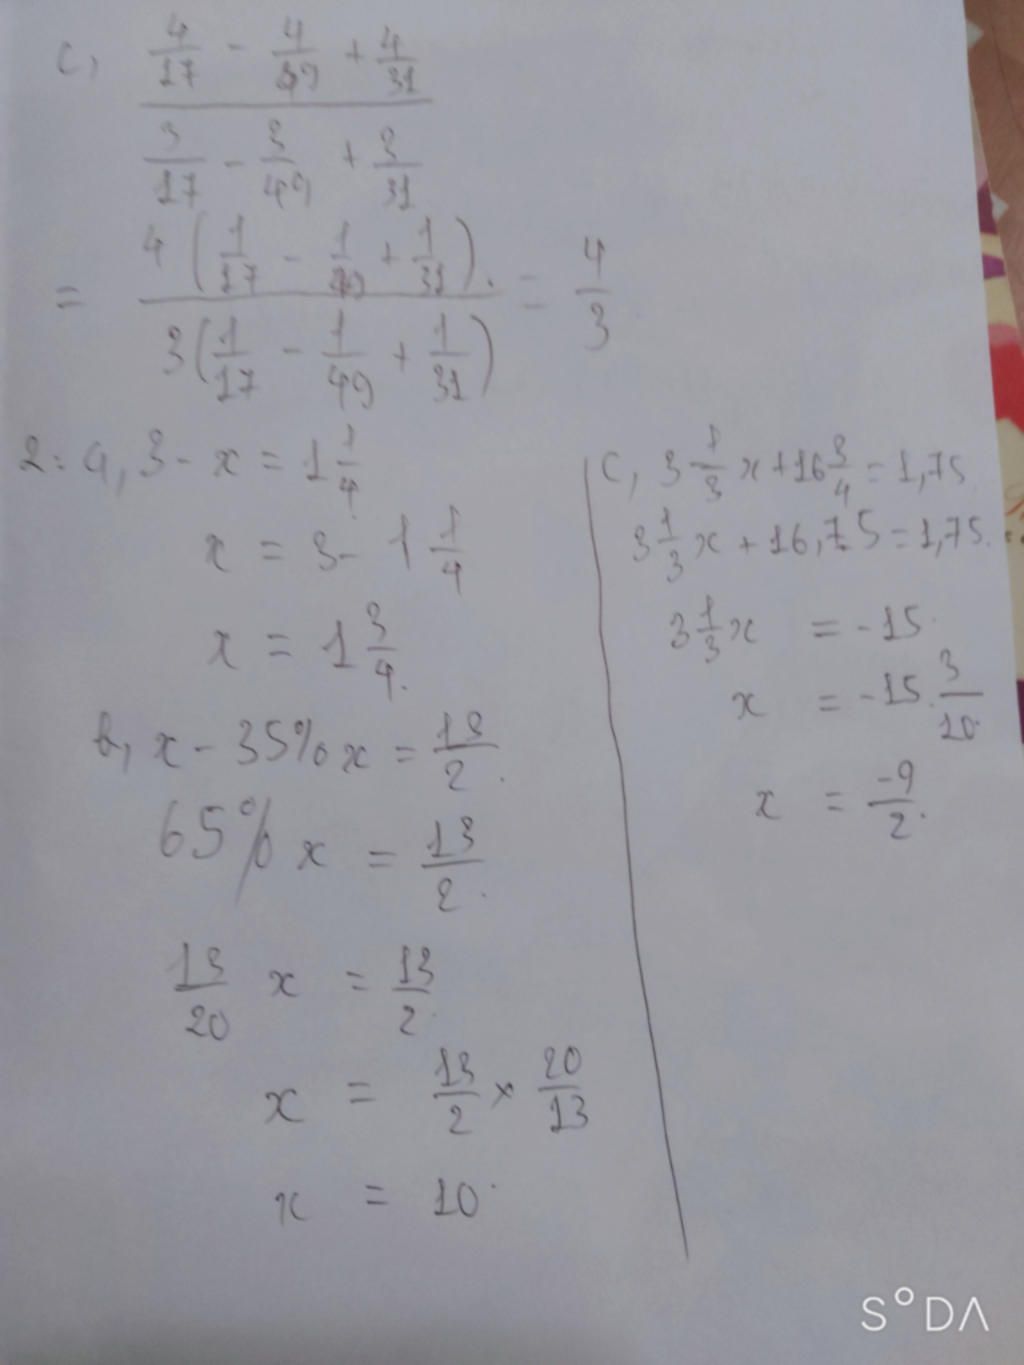 c, 4/17 - 4/49 + 4/31
3/17 - 3/49 + 3/31
= 4(1/17 - 1/49 + 1/31). / 3(1/17 - 1/49 + 1/31) = 4/3
2: a, 3 - x = 1 1/4
x = 3 - 1 1/4
x = 1 3/4.
b, x - 35% x = 13/2.
65% x = 13/2.
13/20 x = 13/2.
x = 13/2 × 20/13
x = 10.
c, 3 1/3 x + 16 3/4 = 1,75.
3 1/3 x + 16,75 = 1,75.
3 1/3 x = -15.
x = -15 . 3/10.
x = -9/2.
S°DA